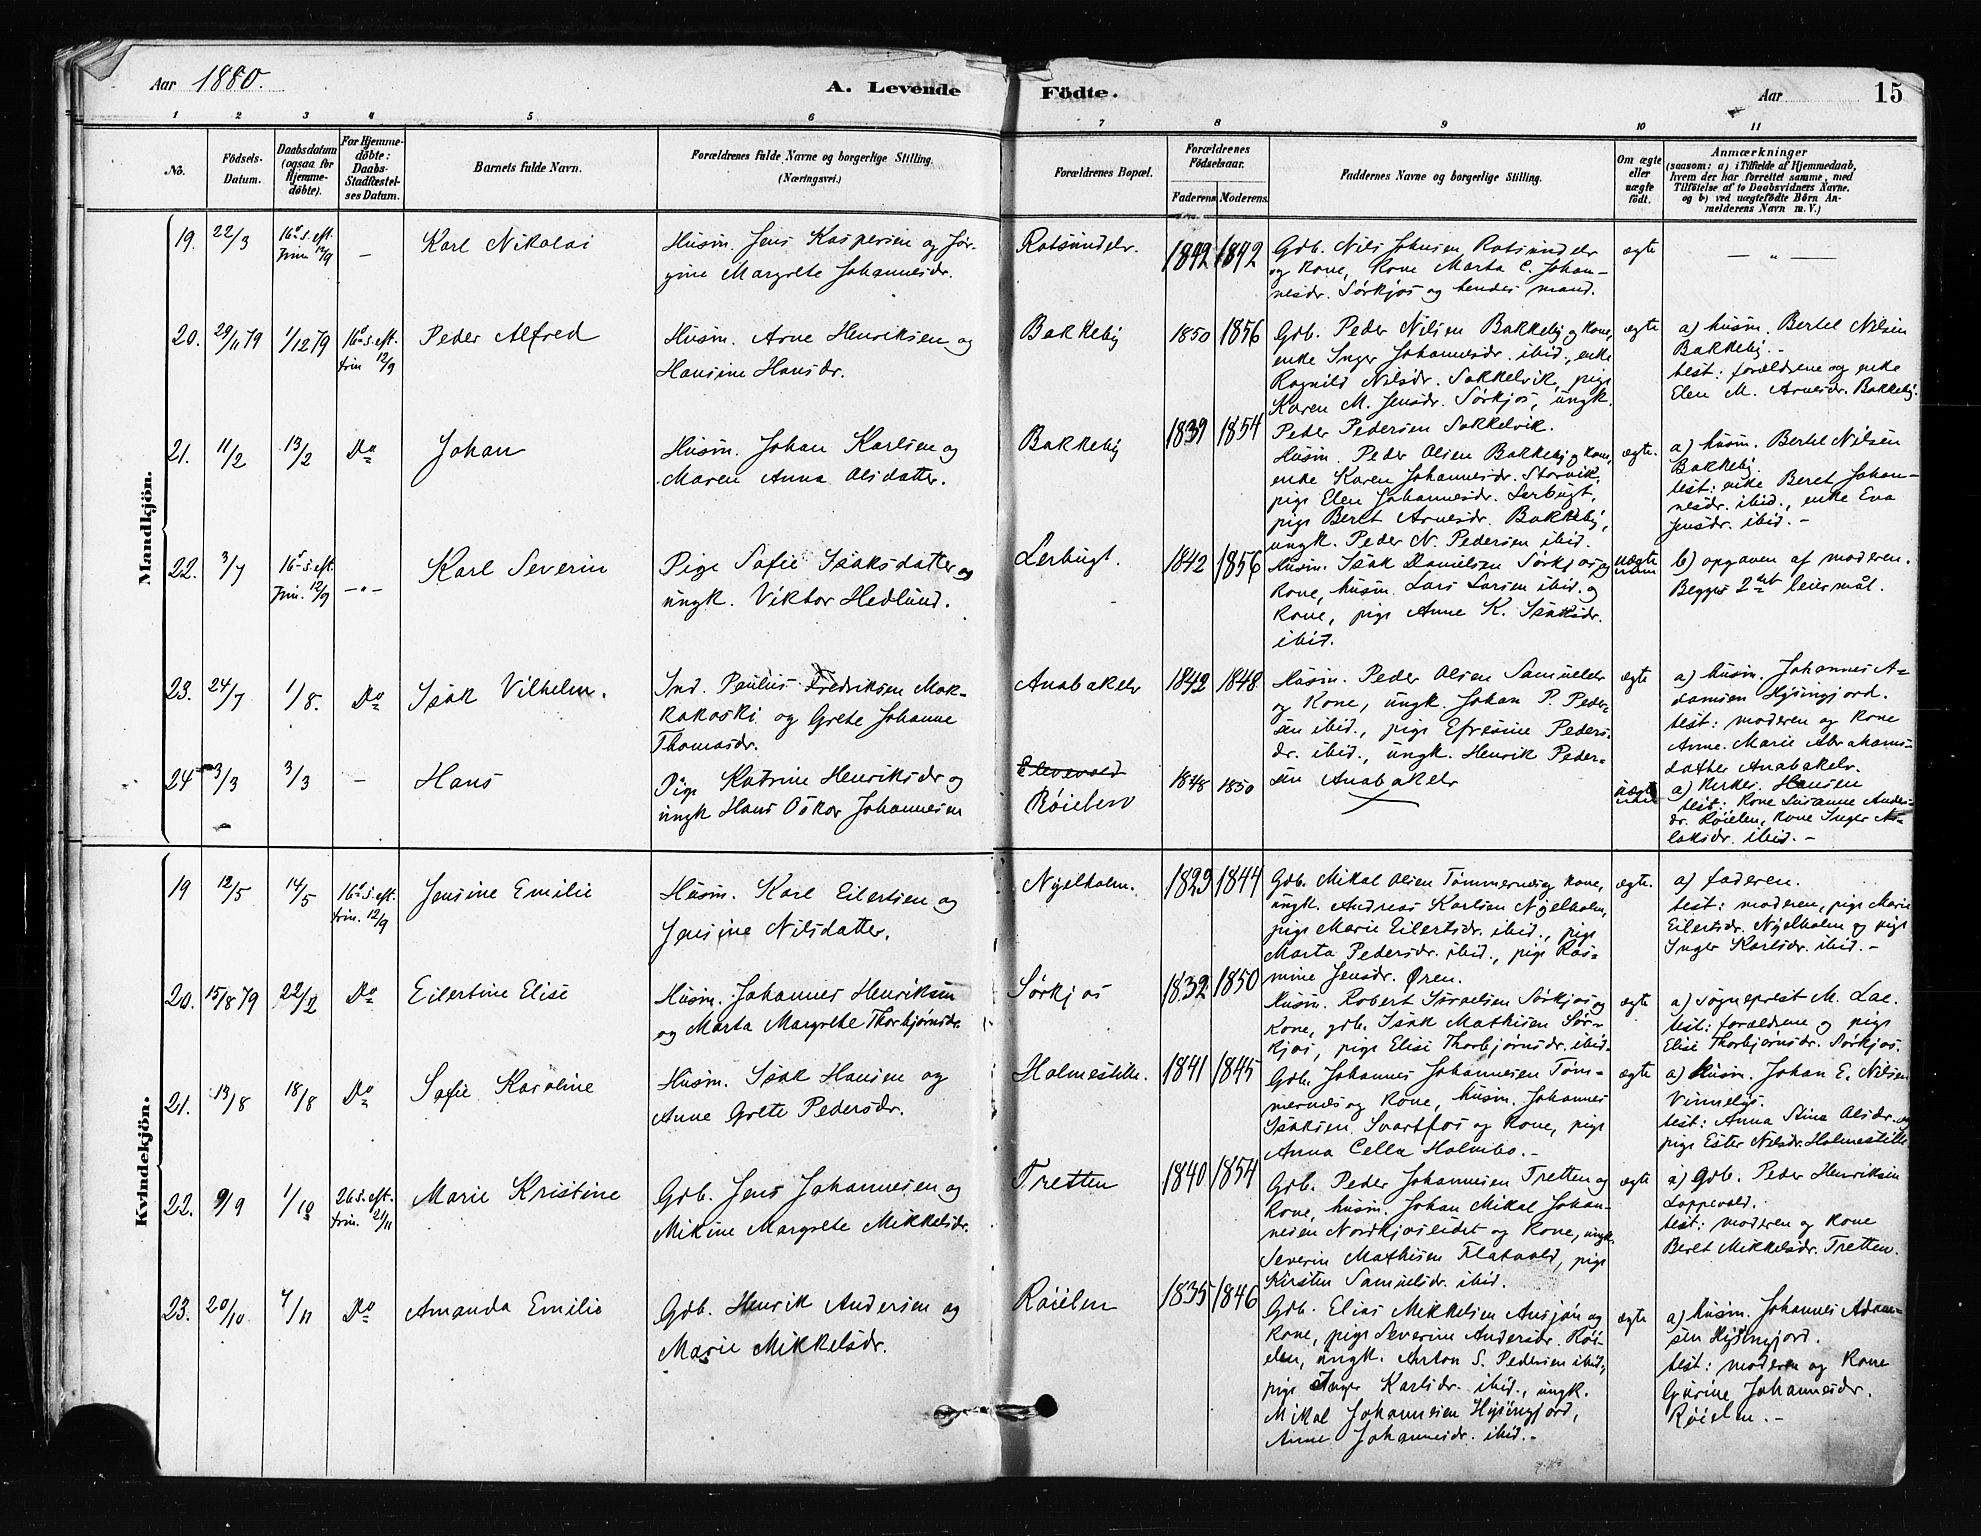 Aar 1880.
A. Levende Fødte.
Aar
15
1 2 3 4 5 6 7 8 9 10 11
No.
Födsels-Datum.
Daabsdatum (ogsaa for Hjemme-døbte).
For Hjemme-døbte: Daabs-Stadfæstelses Datum.
Barnets fulde Navn.
Forældrenes fulde Navne og borgerlige Stilling. (Næringsvei.)
Forældrenes Bopæl.
Forældrenes Fødselsaar.
Faderens. Moderens.
Faddernes Navne og borgerlige Stilling.
Om ægte eller uægte født.
Anmærkninger
(saasom: a) i Tilfælde af Hjemmedaab, hvem der har forrettet samme, med Tilføielse af to Daabsvidners Navne. og b) ved uægtefødte Børn Anmelderens Navn m. V.)
Mandkjön.
19. 22/3 16de s. eft. trin 12/9 — Karl Nikolai
Husm. Jens Kaspersen og Jør-
gine Margrete Johannesdr.
Rotsundelv. 1842 1842
Gdb. Nils Johnsen Rotsundelv
og kone, kone Marta C. Johan-
nesdr. Sørkjos og hendes mand.
ægte — „ —
20. 29/11 79 1/12 79 16de s. eft. trin 12/9 Peder Alfred
Husm. Arne Henriksen og
Hansine Hansdr.
Bakkeby 1850 1856
Gdb. Peder Nilsen Bakkeby og kone,
enke Inger Johannesdr. ibid., enke
Ragnild Nilsdr. Sokkelvik, pige
Karen M. Jensdr. Sørkjos, ungk.
Peder Pedersen Sokkelvik.
ægte
a) husm. Bertel Nilsen
Bakkeby.-
test: forældrene og enke
Elen M. Arnesdr. Bakkeby.
21. 11/2 13/2 Do Johan
Husm. Johan Karlsen og
Maren Anna Olsdatter.
Bakkeby 1839 1854
Husm. Peder Olsen Bakkeby og kone,
enke Karen Johannesdr. Storvik,
pige Elen Johannesdr. Lerbugt,
pige Beret Arnesdr. Bakkeby,
ungk. Peder N. Pedersen ibid.
ægte.
a) husm. Bertel Nilsen
Bakkeby.
test: enke Beret Johan-
nesdr. ibid., enke Eva
Jensdr. ibid.-
22. 3/7 16de s. eft. trin. 12/9 —„— Karl Severin
Pige Sofie Isaksdatter og
ungk. Viktor Hedlund.
Lerbugt. 1842 1856
Husm. Isak Danielsen Sørkjos og
kone, husm. Lars Larsen ibid. og
kone, pige Anne K. Isaksdr.
ibid.
uægte
b) opgaven af moderen.
Begges 2det leiermål.
23. 24/7 1/8. Do Isak Vilhelm.
Ind. Paulus Fredriksen Mak-
kakoski og Grete Johanne
Thomasdr.
Anabakelv 1842 1848
Husm. Peder Olsen Samuelelv
og kone, ungk. Johan P. Peder-
sen ibid., pige Efresine Peders-
dr. ibid., ungk. Henrik Peder-
sen Anabakelv
ægte
a) husm. Johannes A-
damsen Hysingjord.
test: moderen og kone
Anne Marie Abrahams-
datter Anabakelv.
24 3/3 3/3 — Hans
Pige Katrine Henriksdr og
ungk Hans Oskar Johannesen
Elvevold
Røielen 1848 1850
uægte
a) kirkes. Hansen
test: kone Susanne Anders-
dr. Røielen, kone Inger As-
laksdr. ibid.-
Kvindekjön.
19 12/5 14/5 16de s. eft. trin. 12/9 Jensine Emilie
Husm. Karl Eilertsen og
Jensine Nilsdatter.
Nyelholm. 1829 1844
Gdb. Mikal Olsen Tømmernes og kone,
ungk. Andreas Karlsen Nyelholm,
pige Marie Eilertsdr. ibid., pige
Marta Pedersdr. ibid., pige Ras-
mine Jensdr. Øren.
ægte.
a) faderen.
test: moderen, pige Marie
Eilertsdr. Nyelholm og pige
Inger Karlsdr. ibid.-
20. 15/8 79 22/12 Do Eilertine Elise
Husm. Johannes Henriksen
og Marta Margrete Thorbjørnsdr.
Sørkjos 1832 1850
Husm. Robert Israelsen Sørkjos og
kone, gdb. Isak Mathisen Sør-
kjos, pige Elise Thorbjørnsdr. ibid.
ægte
a) sogneprest M. Lae.
test: forældrene og pige
Elise Thorbjørnsdr. Sørkjos.
21. 13/8 18/8 Do Sofie Karoline
Husm. Isak Hansen og
Anne Grete Pedersdr.
Holmestille. 1841 1845
Gdb. Johannes Johannesen Tøm-
mernes og kone, husm. Johannes
Isaksen Svartfos og kone, pige
Anna Cella Holmbo.-
ægte
a) husm. Johan E. Nilsen
Vinnelys.
test: Anna Stina Olsdr. og
pige Ester Nilsdr. Holmestille
22. 9/9 1/10 26 s. eft. trin. 21/11 Marie Kristine
Gdb. Jens Johannesen og
Mikine Margrete Mikkelsdr.
Tretten 1840 1854
Gdb. Peder Johannesen Tretten og
kone, husm. Johan Mikal Johan-
nesen Nordkjoseidet og kone, ungk.
Severin Mathisen Flatvold, pige
Kirsten Samuelsdr. ibid.
ægte
a) Gdb. Peder Henriksen
Loppevold.
test: moderen og kone
Beret Mikkelsdr. Tretten.
23. 20/10 4/11 Do Amanda Emilie
Gdb. Henrik Andersen og
Marie Mikkelsdr.
Røielen 1835 1846
Gdb. Elias Mikkelsen Ansjøn og
kone, pige Severine Andersdr. Røi-
elen, ungk. Anton S. Pedersen ibid.,
pige Inger Karlsdr. ibid., ungk.
Mikal Johannesen Hysingjord,
Anne Johannesdr. ibid.-
ægte
a) husm. Johannes Adam-
sen Hysingjord.
test: moderen og kone
Gurine Johannesdr.
Røielen.-